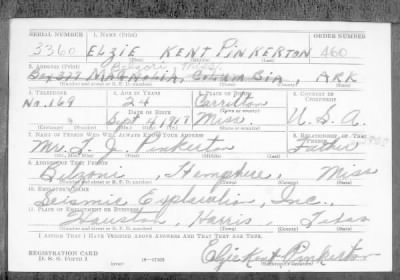 SERIAL NUMBER 1. NAME (Print) ORDER NUMBER
3360 ELZIE KENT PINKERTON 460
(First) (Middle) (Last)
2. ADDRESS (Print) Belzoni, Miss.
Box 277 MAGNOLIA, COLUMBIA, ARK
(Number and street or R. F. D. number) (Town) (County) (State)
3. TELEPHONE 4. AGE IN YEARS 5. PLACE OF BIRTH 6. COUNTRY OF CITIZENSHIP
No. 169 24 Carrollton
DATE OF BIRTH (Town or county)
Sept. Miss. U.S.A.
(Exchange) (Number) (Mo.) (Day) (Yr.) (State or country)
7. NAME OF PERSON WHO WILL ALWAYS KNOW YOUR ADDRESS 8. RELATIONSHIP OF THAT PERSON
Mr. Pinkerton Father
(Mr., Mrs., Miss) (First) (Middle) (Last)
9. ADDRESS OF THAT PERSON
Belzoni, Miss
(Number and street or R. F. D. number) (Town) (County) (State)
10. EMPLOYER'S NAME
Seismic Exploration, Inc.,
11. PLACE OF EMPLOYMENT OR BUSINESS
Houston, Harris, Texas
(Number and street or R. F. D. number) (Town) (County) (State)
I AFFIRM THAT I HAVE VERIFIED ABOVE ANSWERS AND THAT THEY ARE TRUE.
REGISTRATION CARD Elzie Kent Pinkerton
D. S. S. Form 1 (over) 16-17105 (Registrant's signature)